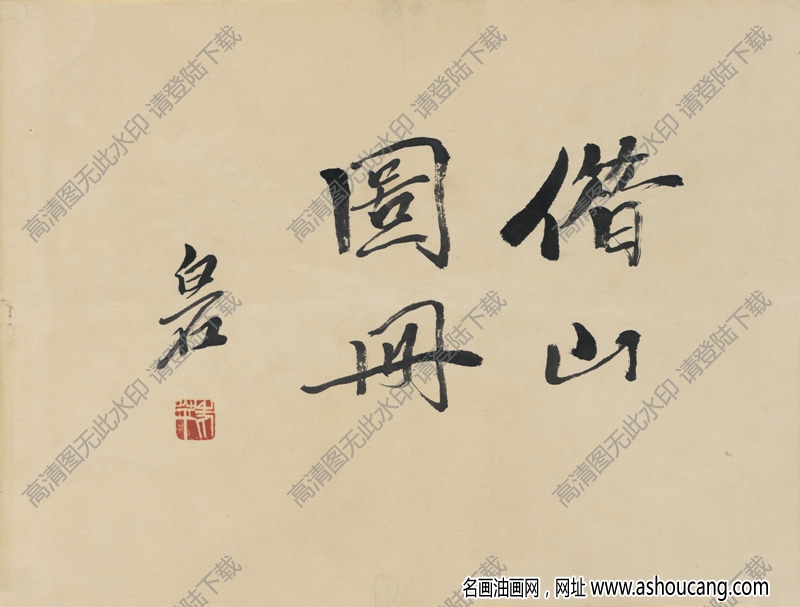 借山
圖冊
白石
高清图无此水印 请登陆下载
高清图无此水印 请登陆下载
高清图无此水印 请登陆下载
高清图无此水印 请登陆下载
高清图无此水印 请登陆下载
高清图无此水印 请登陆下载
名画油画网，网址 www.ashoucang.com